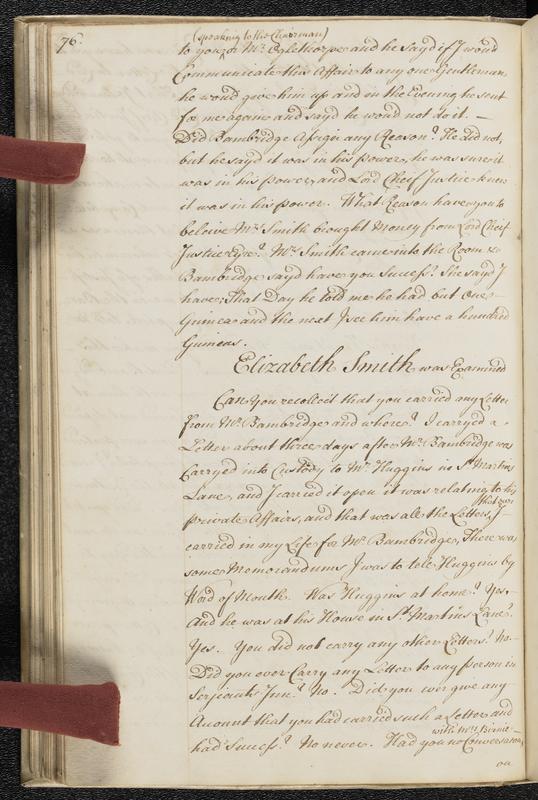 76.
(speaking to the Chairman)
to you or Mr. Oglethorpe and he sayd if I woud
Communicate this Affair to any one Gentleman
he woud give him up and in the Evening he sent
for me again and sayd he woud not do it. —
Did Bambridge Assign any Reason? He did not,
but he sayd it was in his power, he was sure it
was in his power, and Lord Cheif Justice knew
it was in his power. What Reason have you to
beleive Mrs. Smith brought Money from Lord Cheif
Justice Eyre? Mrs. Smith came into the Room &
Bambridge sayd have you Success? She sayd I
have; That Day he told me he had but One
Guinea and the next I see him have a hundred
Guineas.
Elizabeth Smith was Examined
Can You recollect that you carried any Letter
from Mr. Bambridge and where? I carryed a
Letter about three days after Mr. Bambridge was
Carryed into Custody to Mr. Huggins in St. Martins
Lane, and I carried it open it was relating to his
private Affairs, and that was all the Letters, that ever I
carried in my Life for Mr. Bambridge, There was
some Memorandums I was to tell Huggins by
Word of Mouth. Was Huggins at home? Yes.
And he was at his House in St. Martins Lane?
Yes. You did not carry any other Letters? No.
Did you ever Carry any Letter to any person in
Serjeants Inn? No. Did you ever give any
Acount that you had carried such a Letter and
had Success? No never. Had you no Conversation with Mrs. Birnie
on